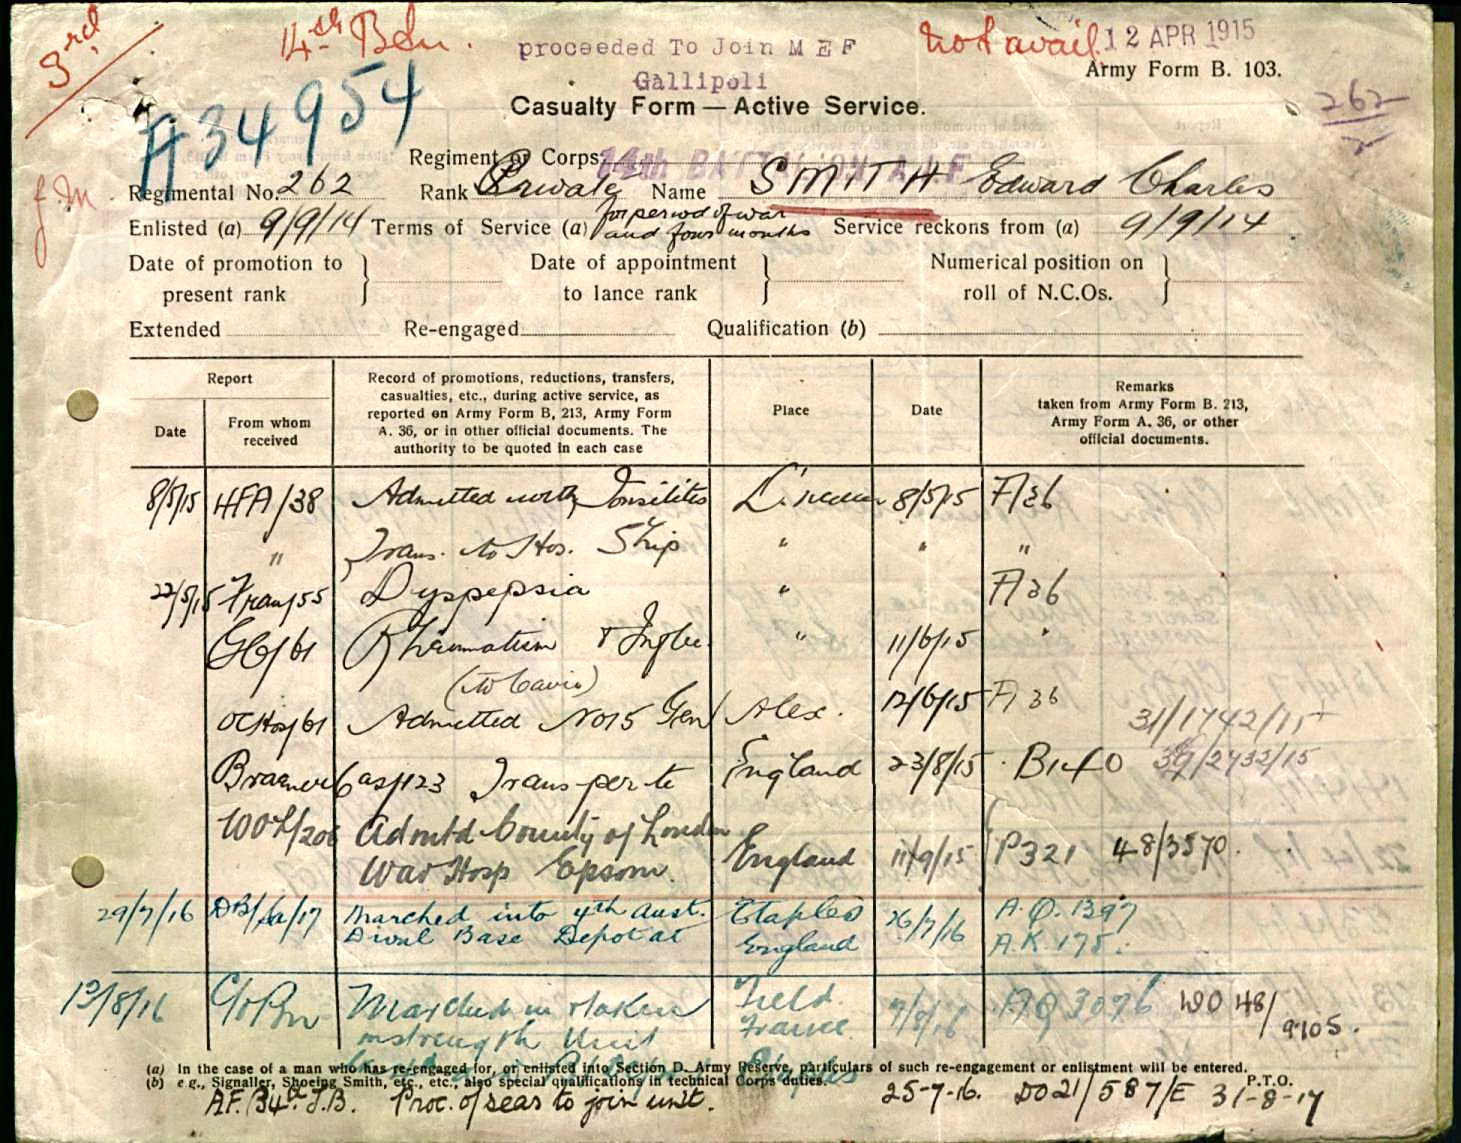 3rd
14th Bdn.
proceeded To Join M E F
Gallipoli
Not avail.
12 APR 1915
Army Form B. 103.
Casualty Form — Active Service.
262
34954
Regiment or Corps 14th BATTALION A.I.F
J.M
Regimental No. 262 Rank Private Name SMITH Edward Charles
Enlisted (a) 9/9/14 Terms of Service (a) for period of war and four months Service reckons from (a) 9/9/14
Date of promotion to present rank } Date of appointment to lance rank } Numerical position on roll of N.C.Os. }
Extended Re-engaged Qualification (b)
Report
Date
From whom received
Record of promotions, reductions, transfers,
casualties, etc., during active service, as
reported on Army Form B, 213, Army Form
A. 36, or in other official documents. The
authority to be quoted in each case
Place
Date
Remarks
taken from Army Form B. 213,
Army Form A. 36, or other
official documents.
8/5/15 4FA/38 Admitted with Tonsilitis 8/5/15 A36
" Trans. to Hos. Ship " " "
22/5/15 Dyspepsia " A36
Rhumatism & Influ. " 11/6/15 "
(to Cairo)
Admitted No 15 Gen Alex. 12/6/15 A 36 31/1742/15
Trans per to England 23/8/15 39/2432/15
Admtd County of London
War Hosp Epsom. England 11/9/15 P321 48/3570.
29/7/16 Marched into 4th Aust. Etaples 26/7/16 A.Q. 1397
Divnl Base Depot at England A.K. 175.
13/8/16 C/o Bn Marched in & taken Field 7/8/16 AQ 3076 WO 48/
on strength Unit France 9105.
(a) In the case of a man who has re-engaged for, or enlisted into Section D. Army Reserve, particulars of such re-engagement or enlistment will be entered.
(b) e.g., Signaller, Shoeing Smith, etc., etc., also special qualifications in technical Corps duties.
P.T.O.
A.F. B4a. J.B. Proc. o/seas to join unit. 25-7-16. DO21/587/E 31-8-17